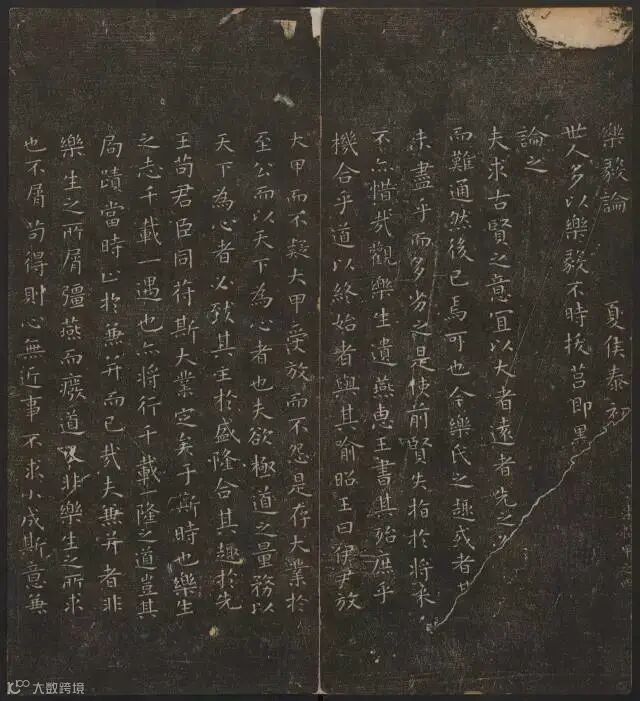 樂毅論 夏侯泰初
世人多以樂毅不時拔莒即墨
論之
夫求古賢之意宜以大者遠者先之
而難通然後已焉可也今樂氏之趣或者
未盡乎而多劣之是使前賢失指於將來
不亦惜哉觀樂生遺燕惠王書其殆庶乎
機合乎道以終始者與其喻昭王曰伊尹放
大甲而不疑大甲受放而不怨是存大業於
至公而以天下為心者也夫欲極道之量務以
天下為心者必致其主於盛隆合其趣於先
王苟君臣同符斯大業定矣于斯時也樂生
之志千載一遇也亦將行千載一隆之道豈其
局蹟當時止於兼并而已哉夫兼并者非
樂生之所屑彊燕而廢道又非樂生之所求
也不屑苟得則心無近事不求小成斯意兼
大数跨境